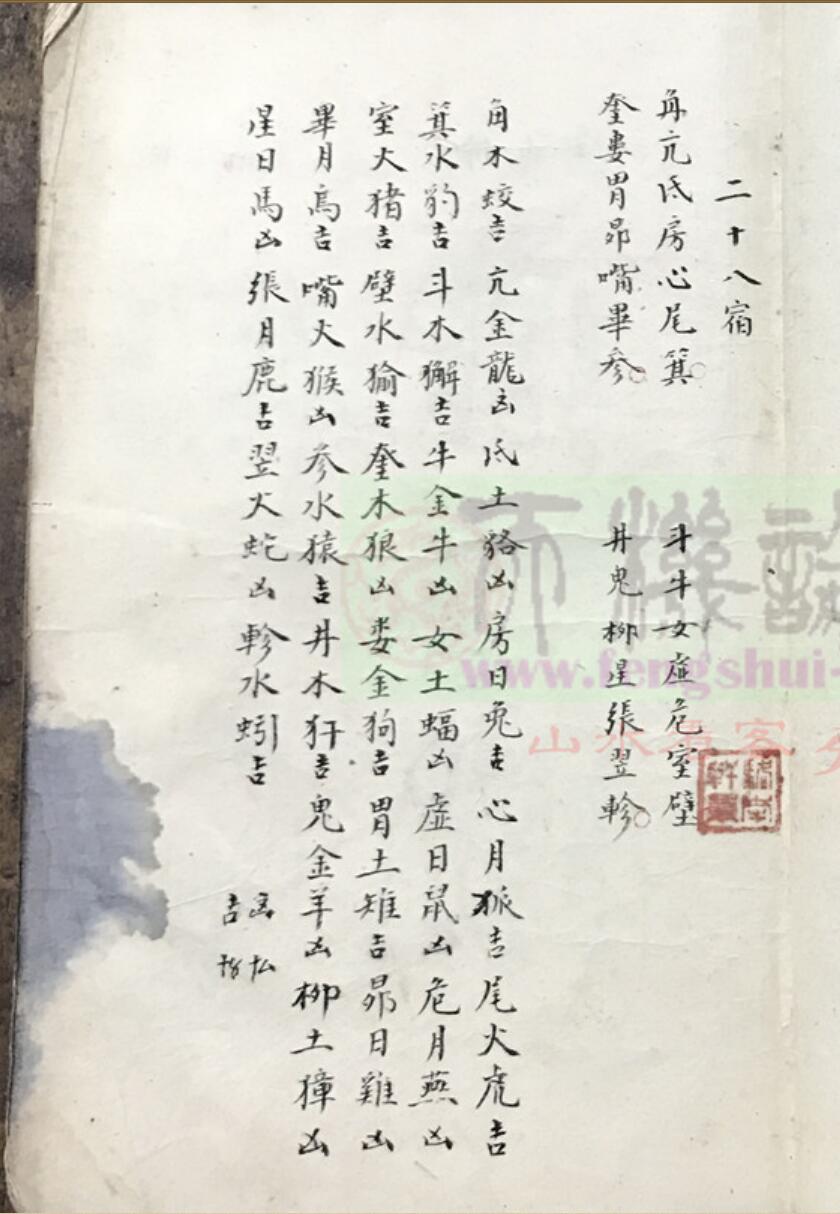 二十八宿
角亢氐房心尾箕 斗牛女虛危室壁
奎婁胃昴嘴畢參 井鬼柳星張翌軫
角木蛟吉 亢金龍凶 氐土貉凶 房日兔吉 心月狐吉 尾火虎吉
箕水豹吉 斗木獬吉 牛金牛凶 女土蝠凶 虛日鼠凶 危月燕凶
室火猪吉 壁水㺄吉 奎木狼凶 娄金狗吉 胃土雉吉 昴日雞凶
畢月烏吉 嘴火猴凶 參水猿吉 井木犴吉 鬼金羊凶 柳土獐凶
星日馬凶 張月鹿吉 翌火蛇凶 軫水蚓吉
凶
吉
www.fengshui-
山水